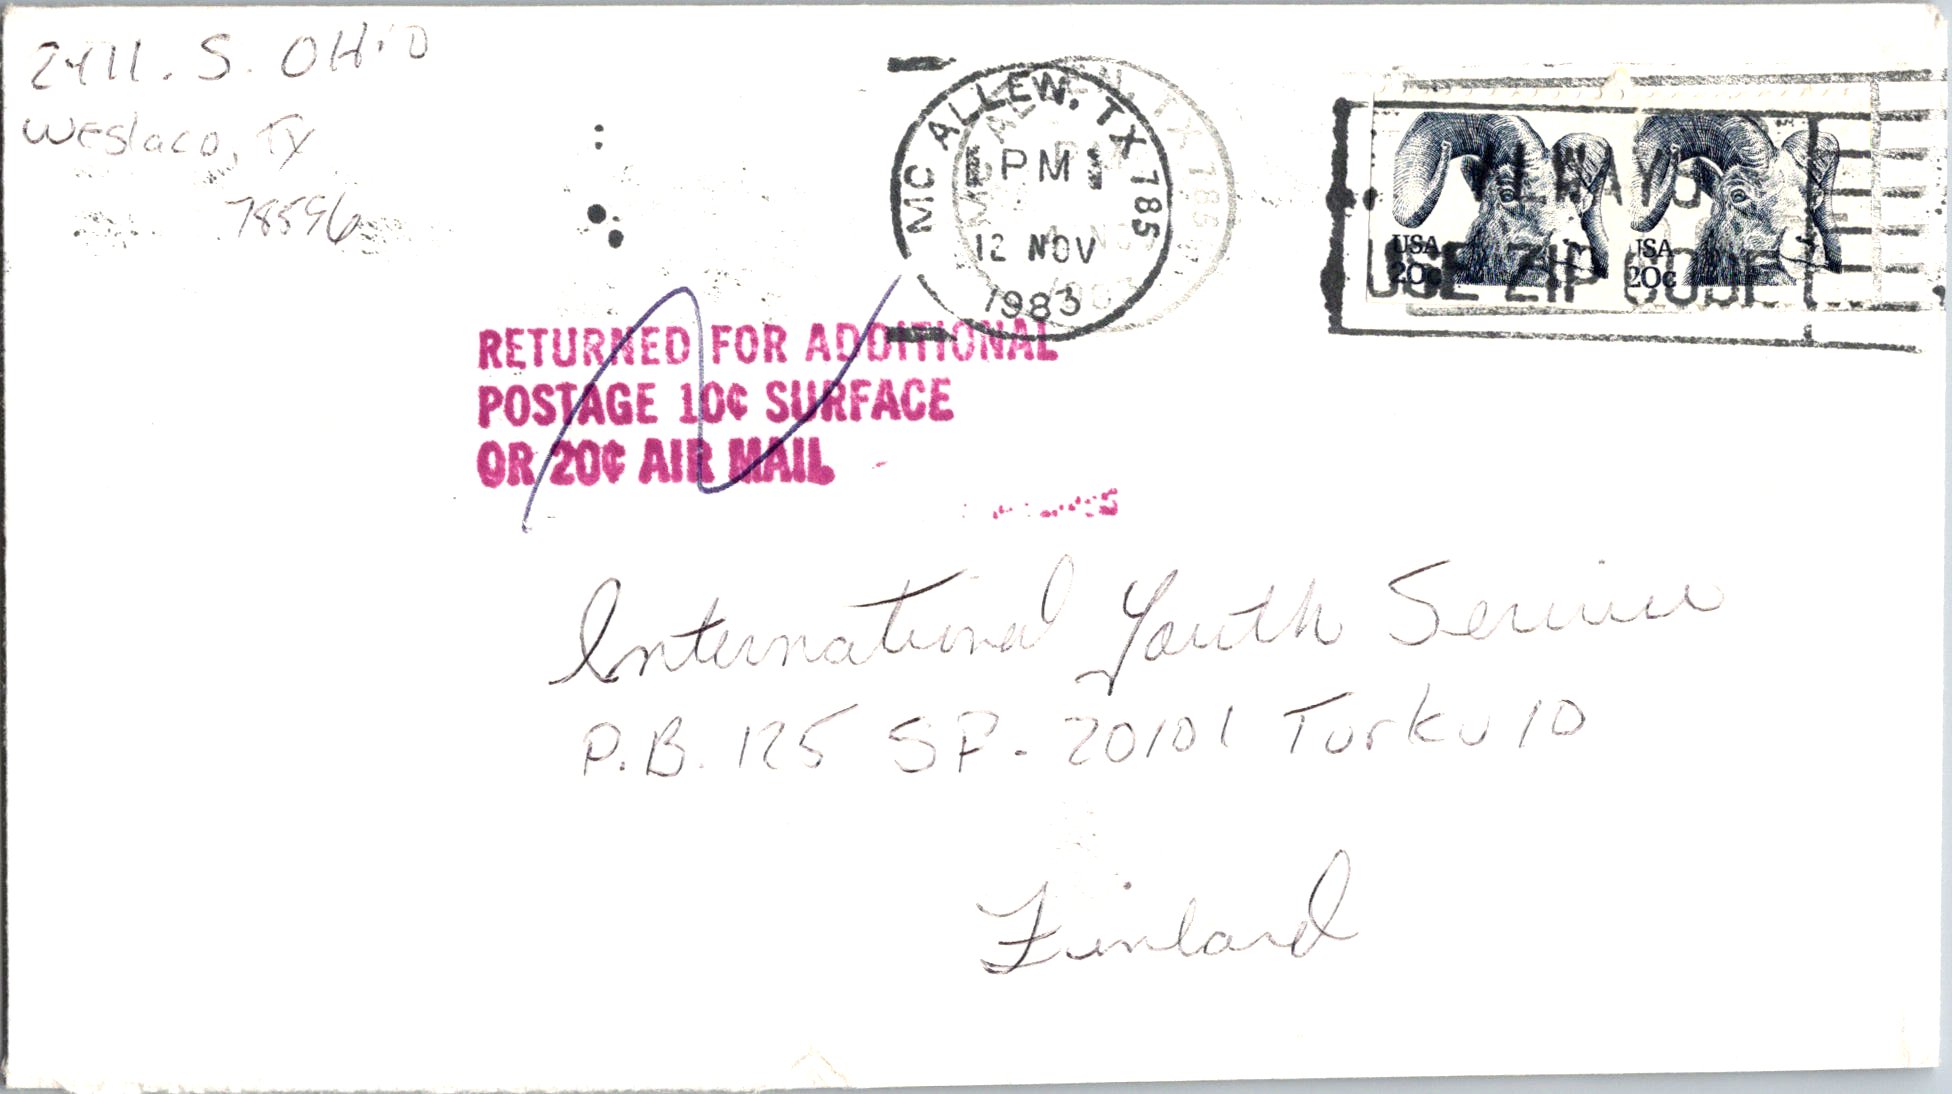 2411. S. OHiO
Weslaco, TX
78596
MC ALLEN, TX 785
PM
12 NOV
1983
ALWAYS
USE ZIP CODE
USA
20c
USA
20c
RETURNED FOR ADDITIONAL
POSTAGE 10¢ SURFACE
OR 20¢ AIR MAIL
International Youth Service
P.B. 125 SF-20101 Turku 10
Finland